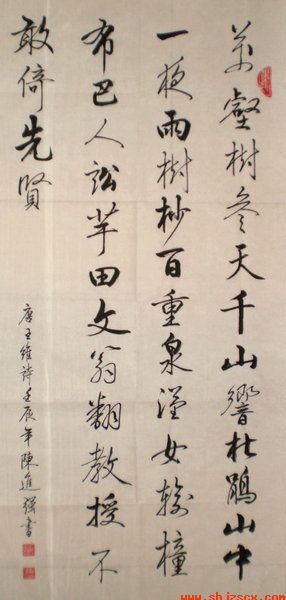 萬壑樹參天千山響杜鵑山中
一夜雨樹杪百重泉漢女輸橦
布巴人訟芋田文翁翻教授不
敢倚先賢
唐王維詩壬辰年陳進強書